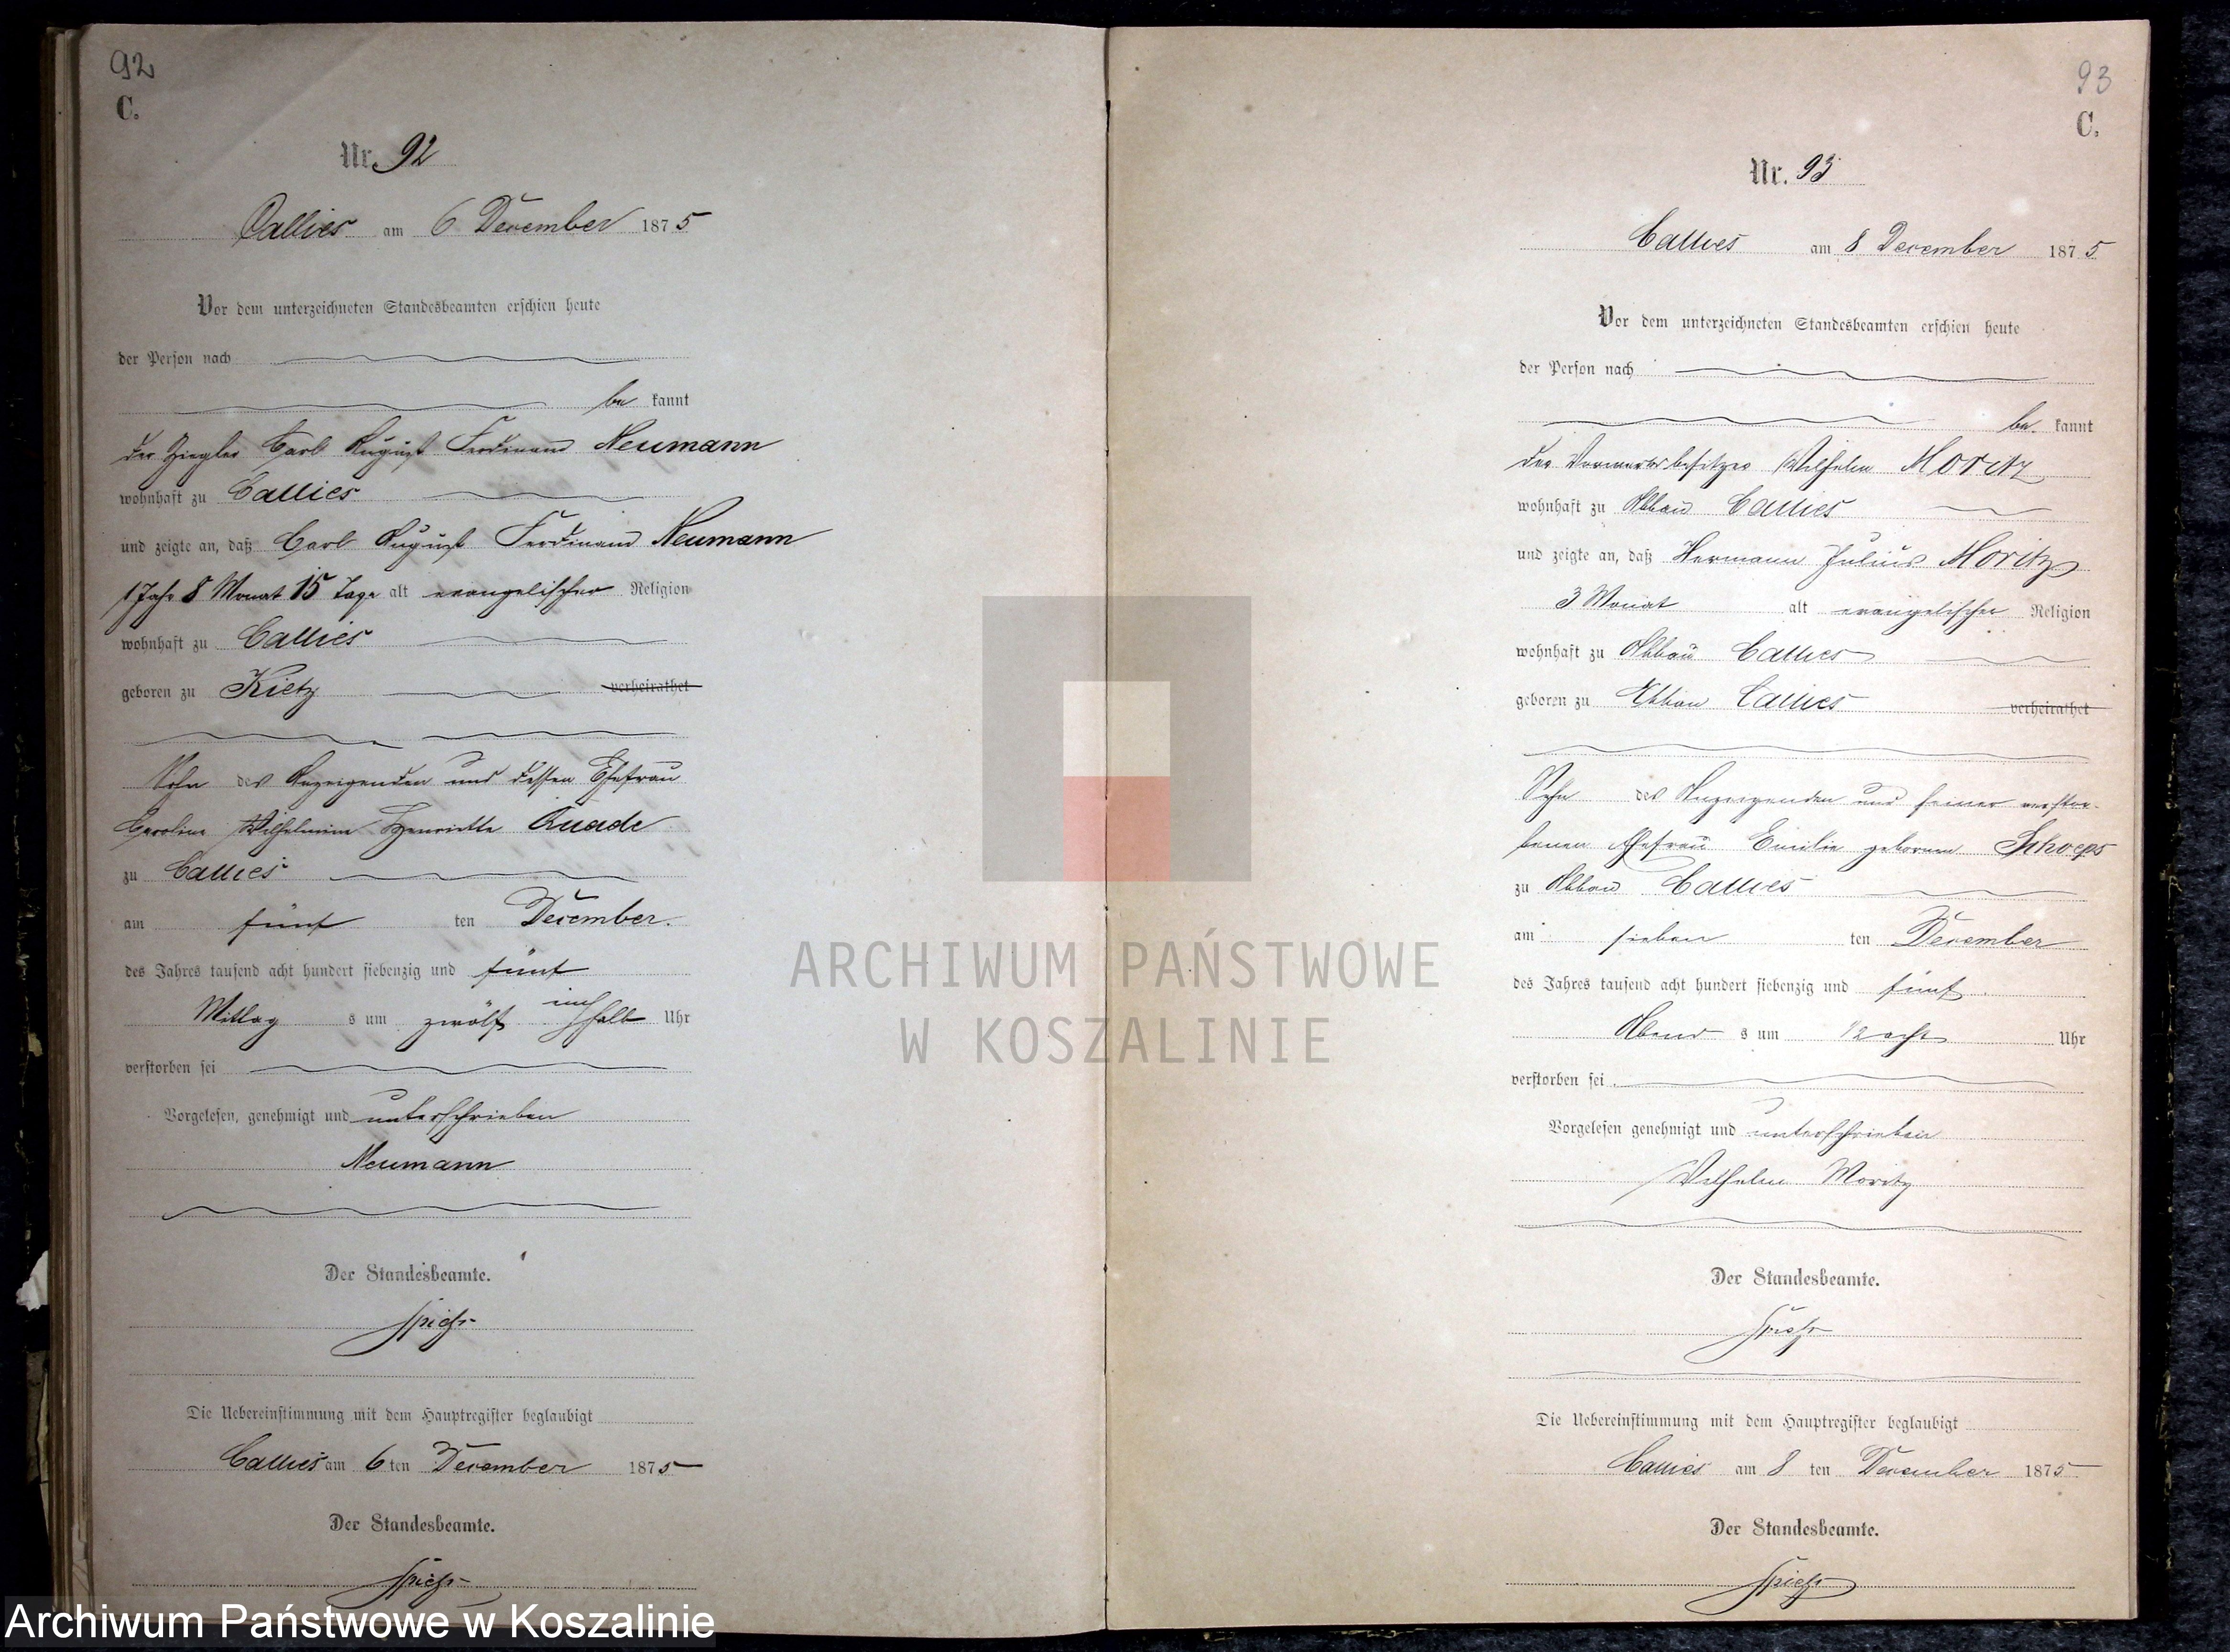 92
C.
Nr. 92
Callies am 6 December 1875
Vor dem unterzeichneten Standesbeamten erschien heute
der Person nach
be kannt
der Ziegler Carl August Ferdinand Neumann
wohnhaft zu Callies
und zeigte an, daß Carl August Ferdinand Neumann
1 Jahr 8 Monat 15 Tage alt evangelischer Religion
wohnhaft zu Callies
geboren zu Kietz verheirathet
Sohn des Anzeigenden und dessen Ehefrau
Caroline Wilhelmine Henriette Quade
zu Callies
am fünf ten December.
des Jahres tausend acht hundert siebenzig und fünf
Mittag s um zwölf ein halb Uhr
verstorben sei
Vorgelesen, genehmigt und unterschrieben
Neumann
Der Standesbeamte.
Spiehs
Die Uebereinstimmung mit dem Hauptregister beglaubigt
Callies am 6 ten December 1875
Der Standesbeamte.
Spiehs
93
C.
Nr. 93
Callies am 8 December 1875
Vor dem unterzeichneten Standesbeamten erschien heute
der Person nach
be kannt
der Vorwerksbesitzer Wilhelm Moritz
wohnhaft zu Abbau Callies
und zeigte an, daß Hermann Julius Moritz
3 Monat alt evangelischer Religion
wohnhaft zu Abbau Callies
geboren zu Abbau Callies verheirathet
Sohn des Anzeigenden und seiner verstor-
benen Ehefrau Emilie geborenen Schoeps
zu Abbau Callies
am sieben ten December
des Jahres tausend acht hundert siebenzig und fünf
Abend s um 1/2 acht Uhr
verstorben sei
Vorgelesen genehmigt und unterschrieben
Wilhelm Moritz
Der Standesbeamte.
Spiehs
Die Uebereinstimmung mit dem Hauptregister beglaubigt
Callies am 8 ten December 1875
Der Standesbeamte.
Spiehs
ARCHIWUM PAŃSTWOWE
W KOSZALINIE
Archiwum Państwowe w Koszalinie